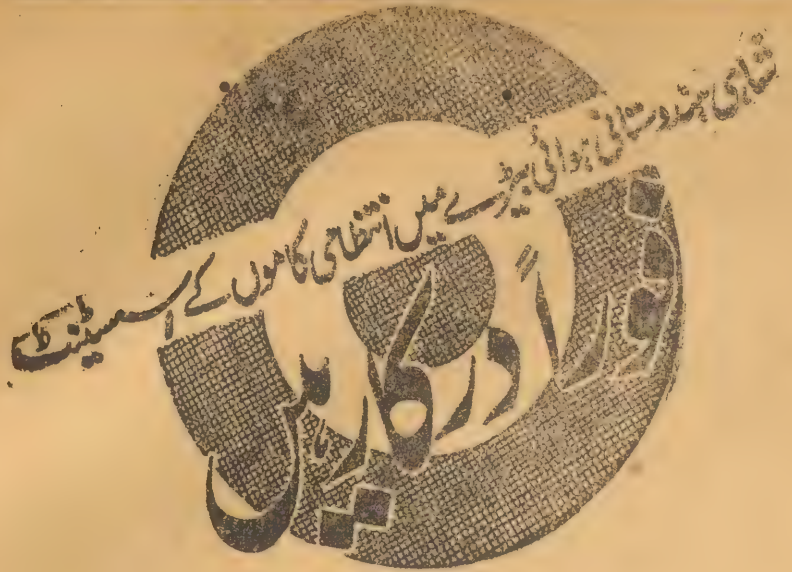 شاہی ہندوستانی ہوائی بیڑے میں انتظامی کاموں کے اسسٹینٹ
فوراً درکار ہیں